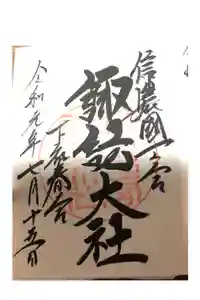 信濃國一之宮
諏訪大社
下社春宮
令和元年七月十五日